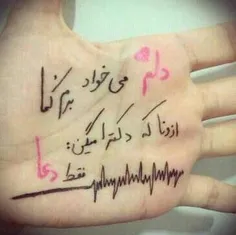 دلم می خواد برم کما
ازونا که دکترا میگن:
فقط دعا